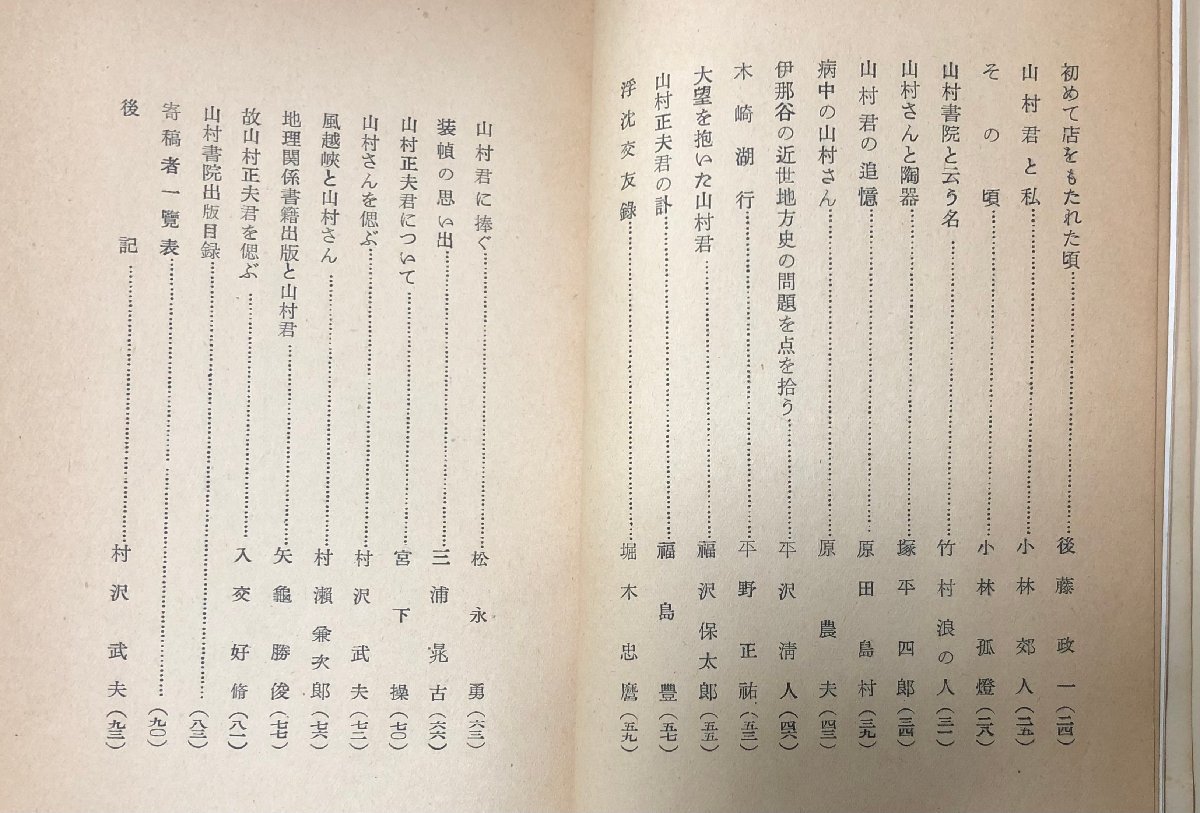 初めて店をもたれた頃……後藤政一(二四)
山村君と私……小林郊人(二五)
その頃……小林孤燈(二八)
山村書院と云う名……竹村浪の人(三一)
山村さんと陶器……塚平四郎(三四)
山村君の追憶……原田島村(三九)
病中の山村さん……原農夫(四三)
伊那谷の近世地方史の問題を点を拾う……平沢清人(四六)
木崎湖行……平野正祐(五三)
大望を抱いた山村君……福沢保太郎(五五)
山村正夫君の訃……福島豊(五七)
浮沈交友録……堀木忠麿(五九)
山村君に捧ぐ……松永勇(六三)
装幀の思い出……三浦晃古(六六)
山村正夫君について……宮下操(七〇)
山村さんを偲ぶ……村沢武夫(七二)
風越峡と山村さん……村瀬兼次郎(七六)
地理関係書籍出版と山村君……矢亀勝俊(七七)
故山村正夫君を偲ぶ……入交好脩(八一)
山村書院出版目録……(八三)
寄稿者一覧表……(九〇)
後記……村沢武夫(九二)